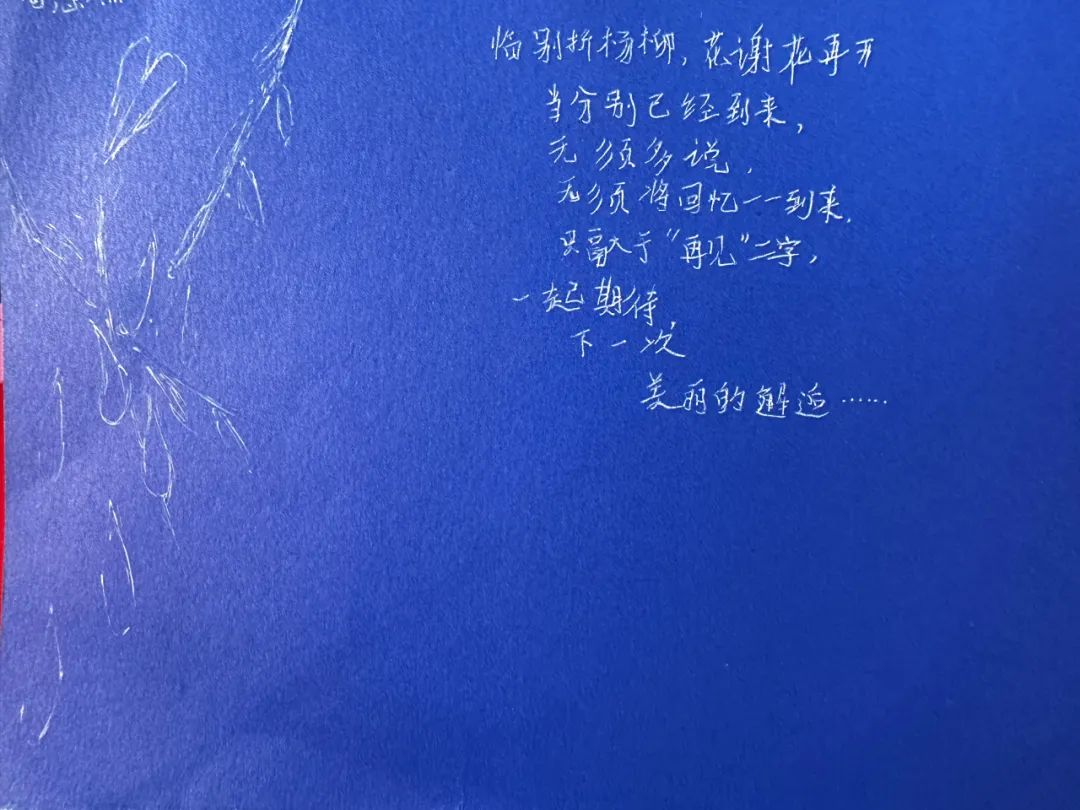 临别折杨柳，花谢花再开
当分别已经到来，
无须多说，
无须将回忆一一到来，
只需大于“再见”二字，
一起期待，
下一次
美丽的邂逅……